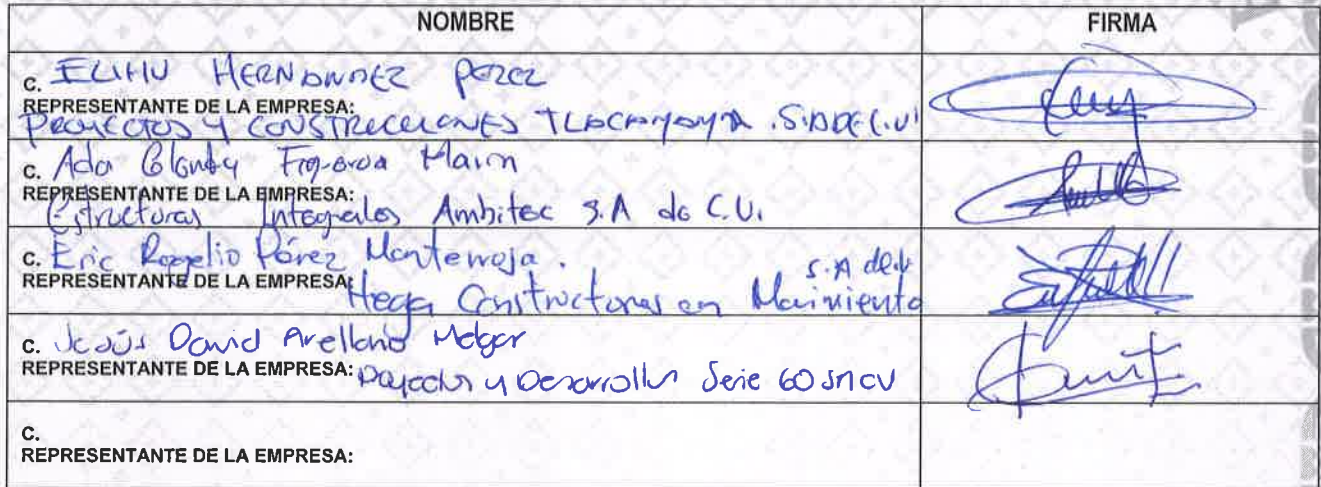 NOMBRE FIRMA
C. ELIHU HERNANDEZ PEREZ
REPRESENTANTE DE LA EMPRESA:
PROYECTOS Y CONSTRUCCIONES TLACAMAMA S.A DE C.V
C. Ada Figueroa Marin
REPRESENTANTE DE LA EMPRESA:
Estructuras Integrales Ambitec S.A de C.V.
C. Eric Rogelio Pérez
S.A de
REPRESENTANTE DE LA EMPRESA: Constructores en Movimiento
C. Jesús David Arellano Melgar
REPRESENTANTE DE LA EMPRESA: Proyectos y Desarrollos Serie 60 SA CV
C.
REPRESENTANTE DE LA EMPRESA: